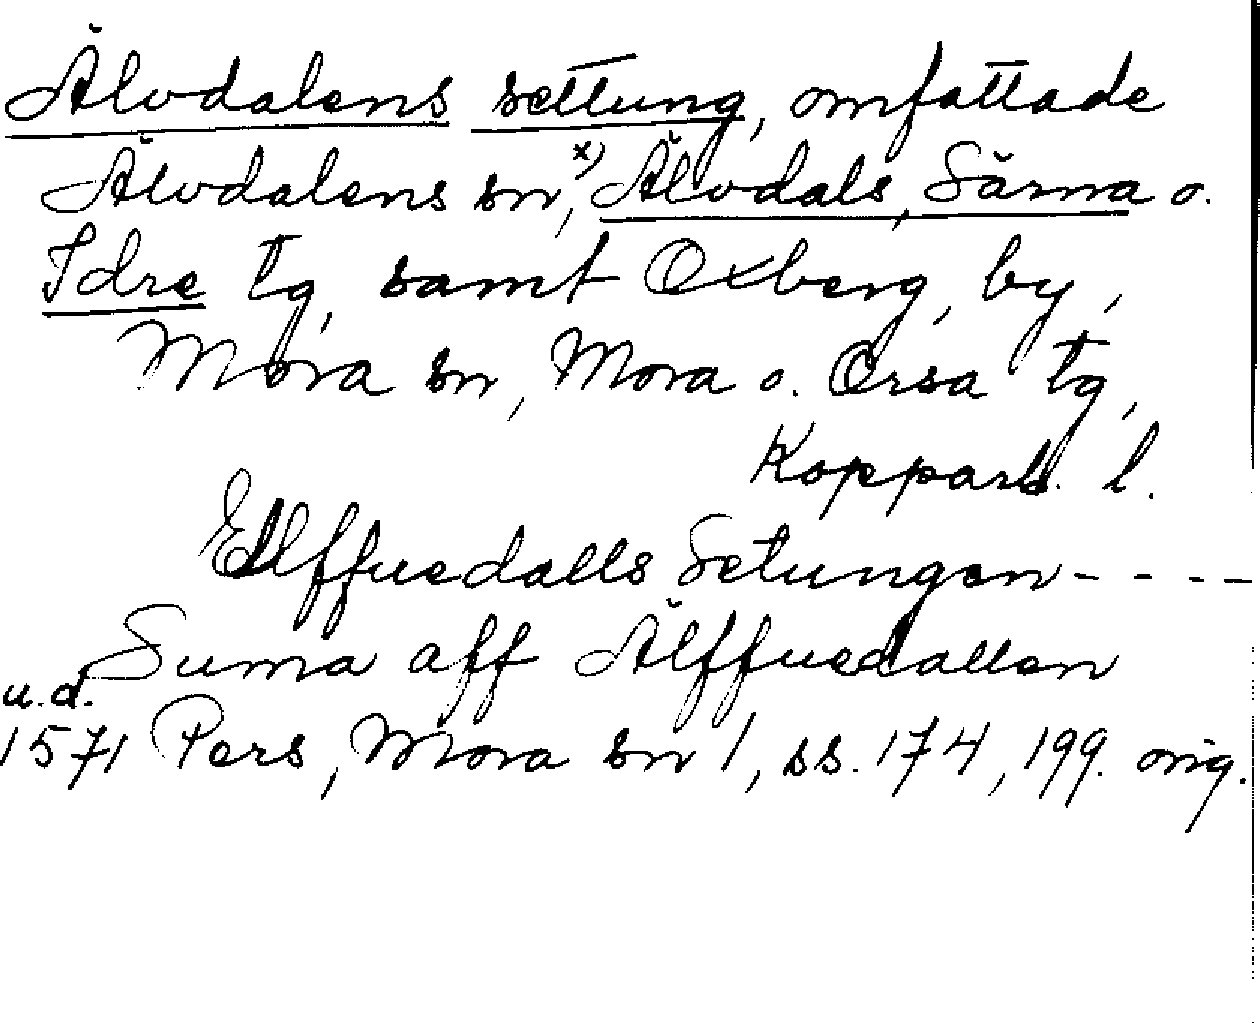 Älvdalens settung, omfattade
Älvdalens sn,x) Älvdals, Särna o.
Idre tg, samt Oxberg, by,
Mora sn, Mora o. Orsa tg,
Kopparb. l.
Elffuedalls Setungen - - - -
Suma aff Älffuedallen
u.d.
1571 Pers, Mora sn 1, ss. 174, 199. orig.